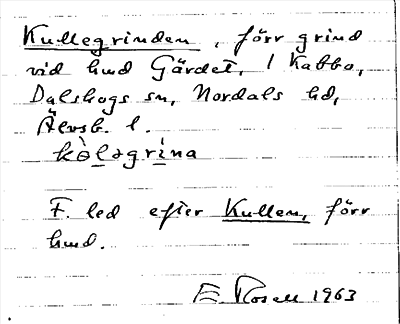 Kullegrinden, förr grind
vid hmd Gärdet, 1 Kabbo,
Dalskogs sn, Nordals hd,
Älvsb. l.
kòləgrìna
F. led efter Kullen, förr
hmd.
E Rosell 1963